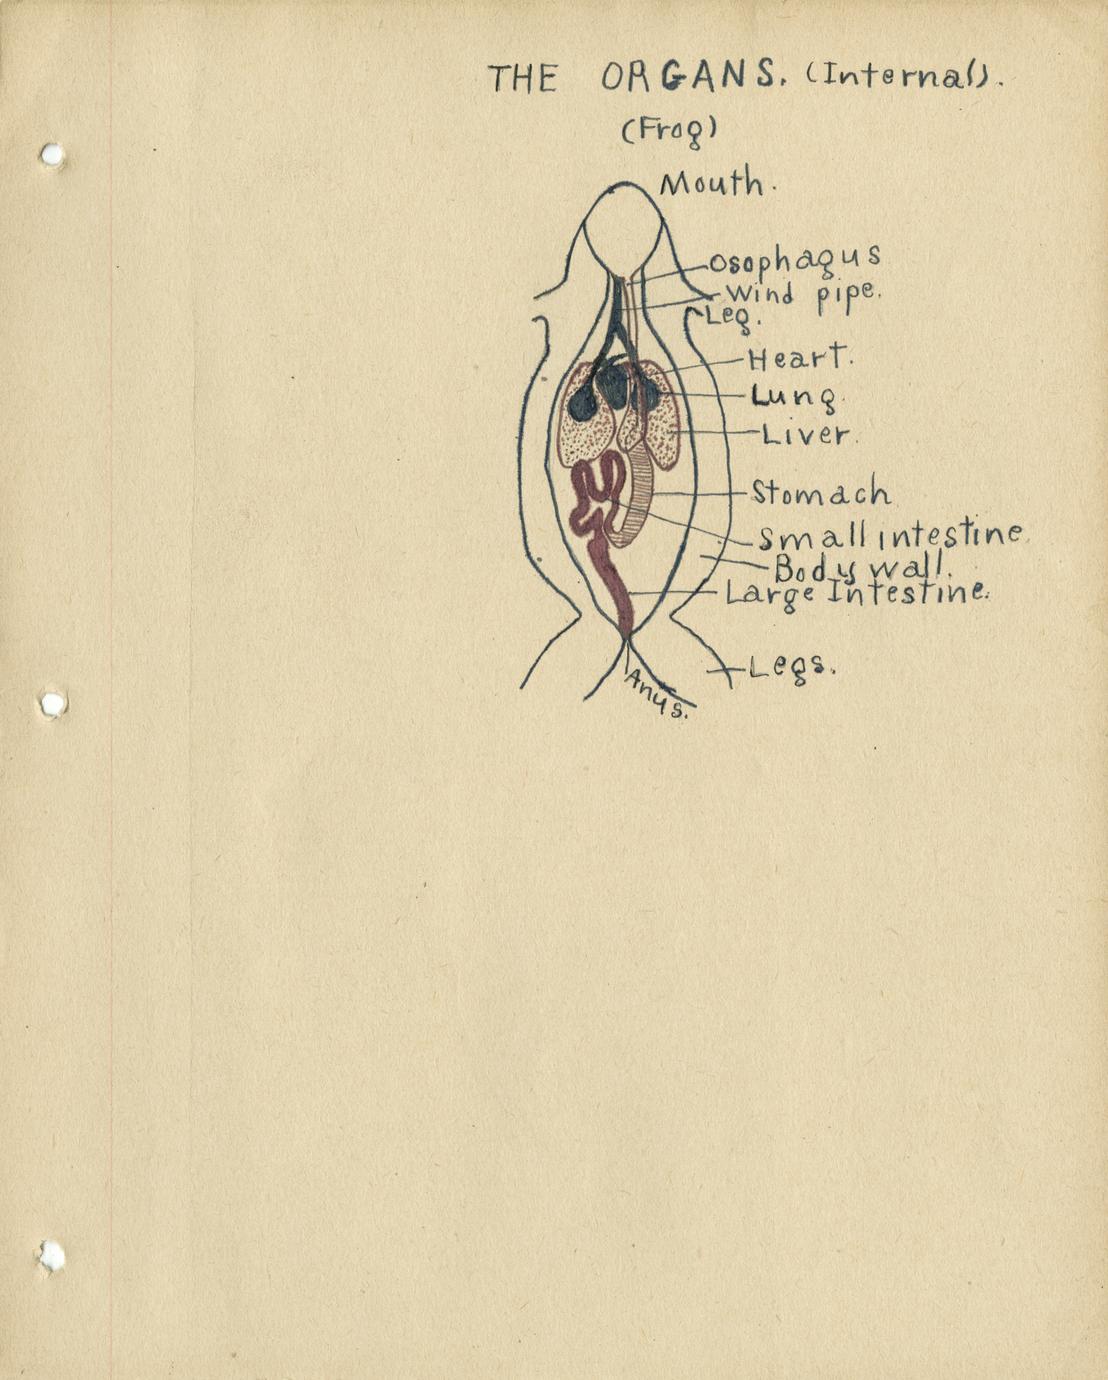 THE ORGANS. (Internal).
(Frog)
Mouth.
Osophagus
Wind pipe.
Leg.
Heart.
Lung.
Liver.
Stomach
Small intestine.
Body wall.
Large Intestine.
Legs.
Anus.